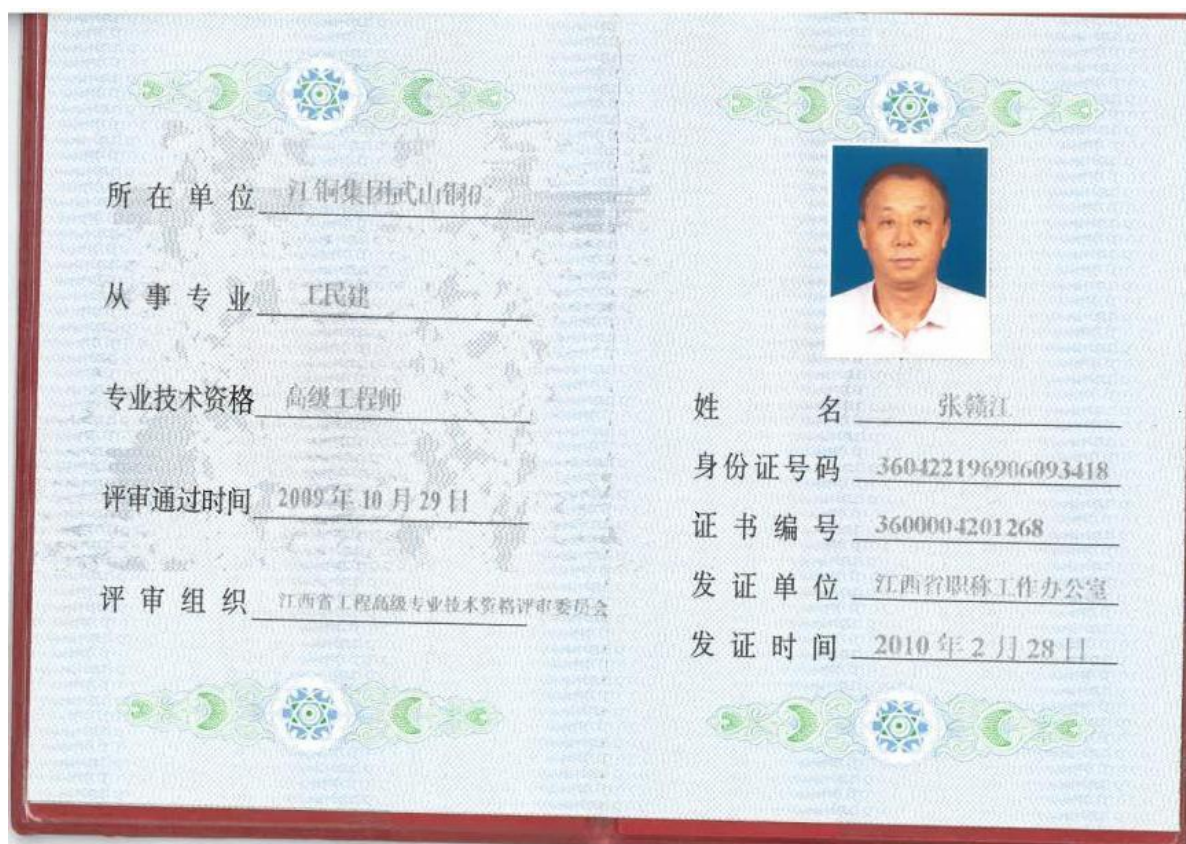 所在单位 江铜集团武山铜矿
从事专业 工民建
专业技术资格 高级工程师
评审通过时间 2009年10月29日
评审组织 江西省工程高级专业技术资格评审委员会
姓名 张赣江
身份证号码 360422196906093418
证书编号 3600004201268
发证单位 江西省职称工作办公室
发证时间 2010年2月28日